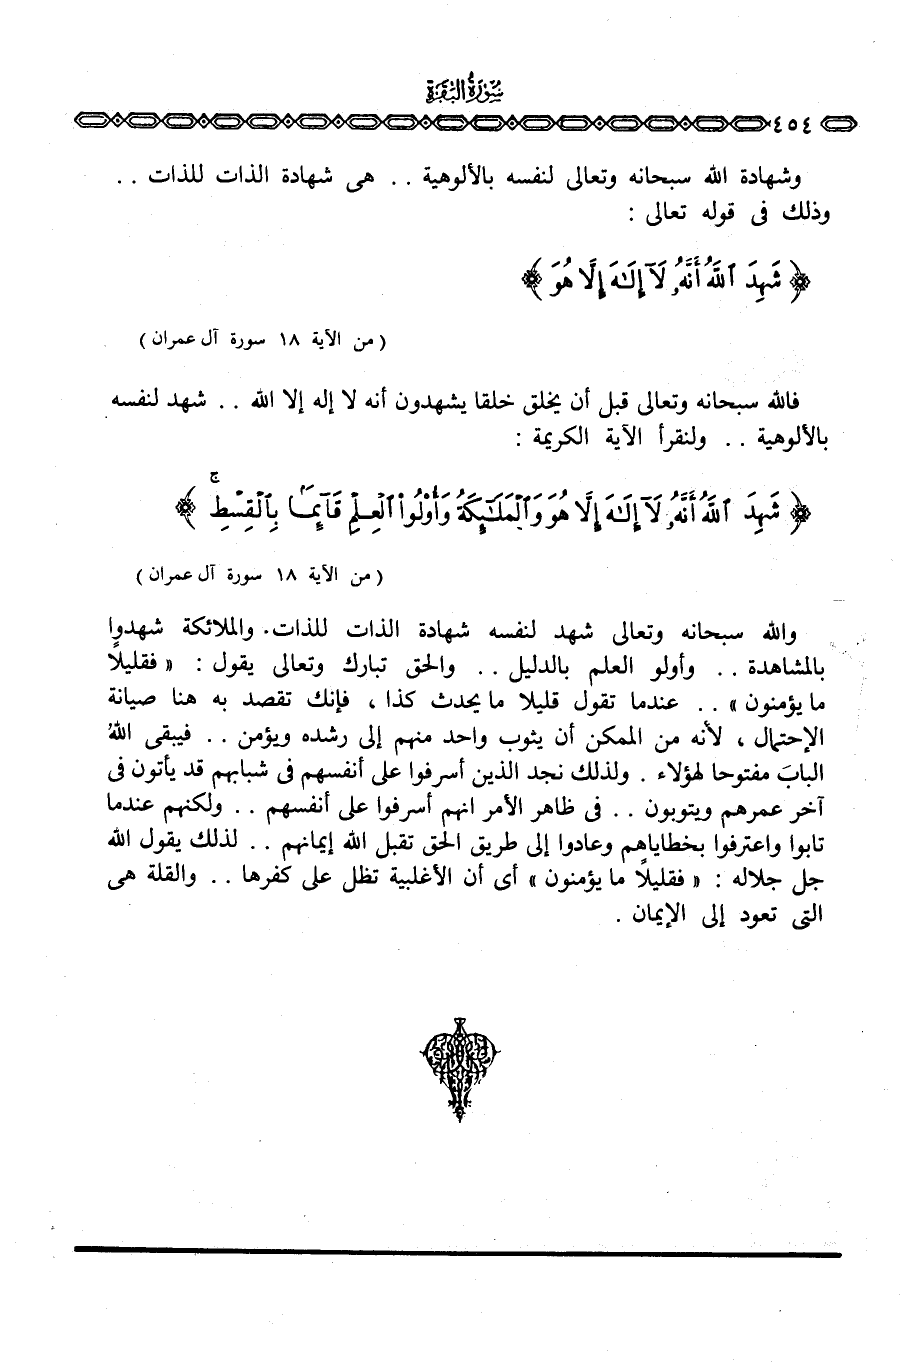 سُورَةُ البَقَرَةِ
٤٥٤
وشهادة الله سبحانه وتعالى لنفسه بالألوهية . . هى شهادة الذات للذات . .
وذلك فى قوله تعالى :
﴿ شَهِدَ ٱللَّهُ أَنَّهُۥ لَآ إِلَٰهَ إِلَّا هُوَ ﴾
( من الآية ١٨ سورة آل عمران )
فالله سبحانه وتعالى قبل أن يخلق خلقا يشهدون أنه لا إله إلا الله . . شهد لنفسه
بالألوهية . . ولنقرأ الآية الكريمة :
﴿ شَهِدَ ٱللَّهُ أَنَّهُۥ لَآ إِلَٰهَ إِلَّا هُوَ وَٱلْمَلَٰٓئِكَةُ وَأُو۟لُوا۟ ٱلْعِلْمِ قَآئِمًۢا بِٱلْقِسْطِ ۚ ﴾
( من الآية ١٨ سورة آل عمران )
والله سبحانه وتعالى شهد لنفسه شهادة الذات للذات. والملائكة شهدوا
بالمشاهدة . . وأولو العلم بالدليل . . والحق تبارك وتعالى يقول : « فقليلًا
ما يؤمنون » . . عندما تقول قليلا ما يحدث كذا ، فإنك تقصد به هنا صيانة
الإحتمال ، لأنه من الممكن أن يثوب واحد منهم إلى رشده ويؤمن . . فيبقى اللهُ
البابَ مفتوحا لهؤلاء . ولذلك نجد الذين أسرفوا على أنفسهم فى شبابهم قد يأتون فى
آخر عمرهم ويتوبون . . فى ظاهر الأمر انهم أسرفوا على أنفسهم . . ولكنهم عندما
تابوا واعترفوا بخطاياهم وعادوا إلى طريق الحق تقبل الله إيمانهم . . لذلك يقول الله
جل جلاله : « فقليلًا ما يؤمنون » أى أن الأغلبية تظل على كفرها . . والقلة هى
التى تعود إلى الإيمان .